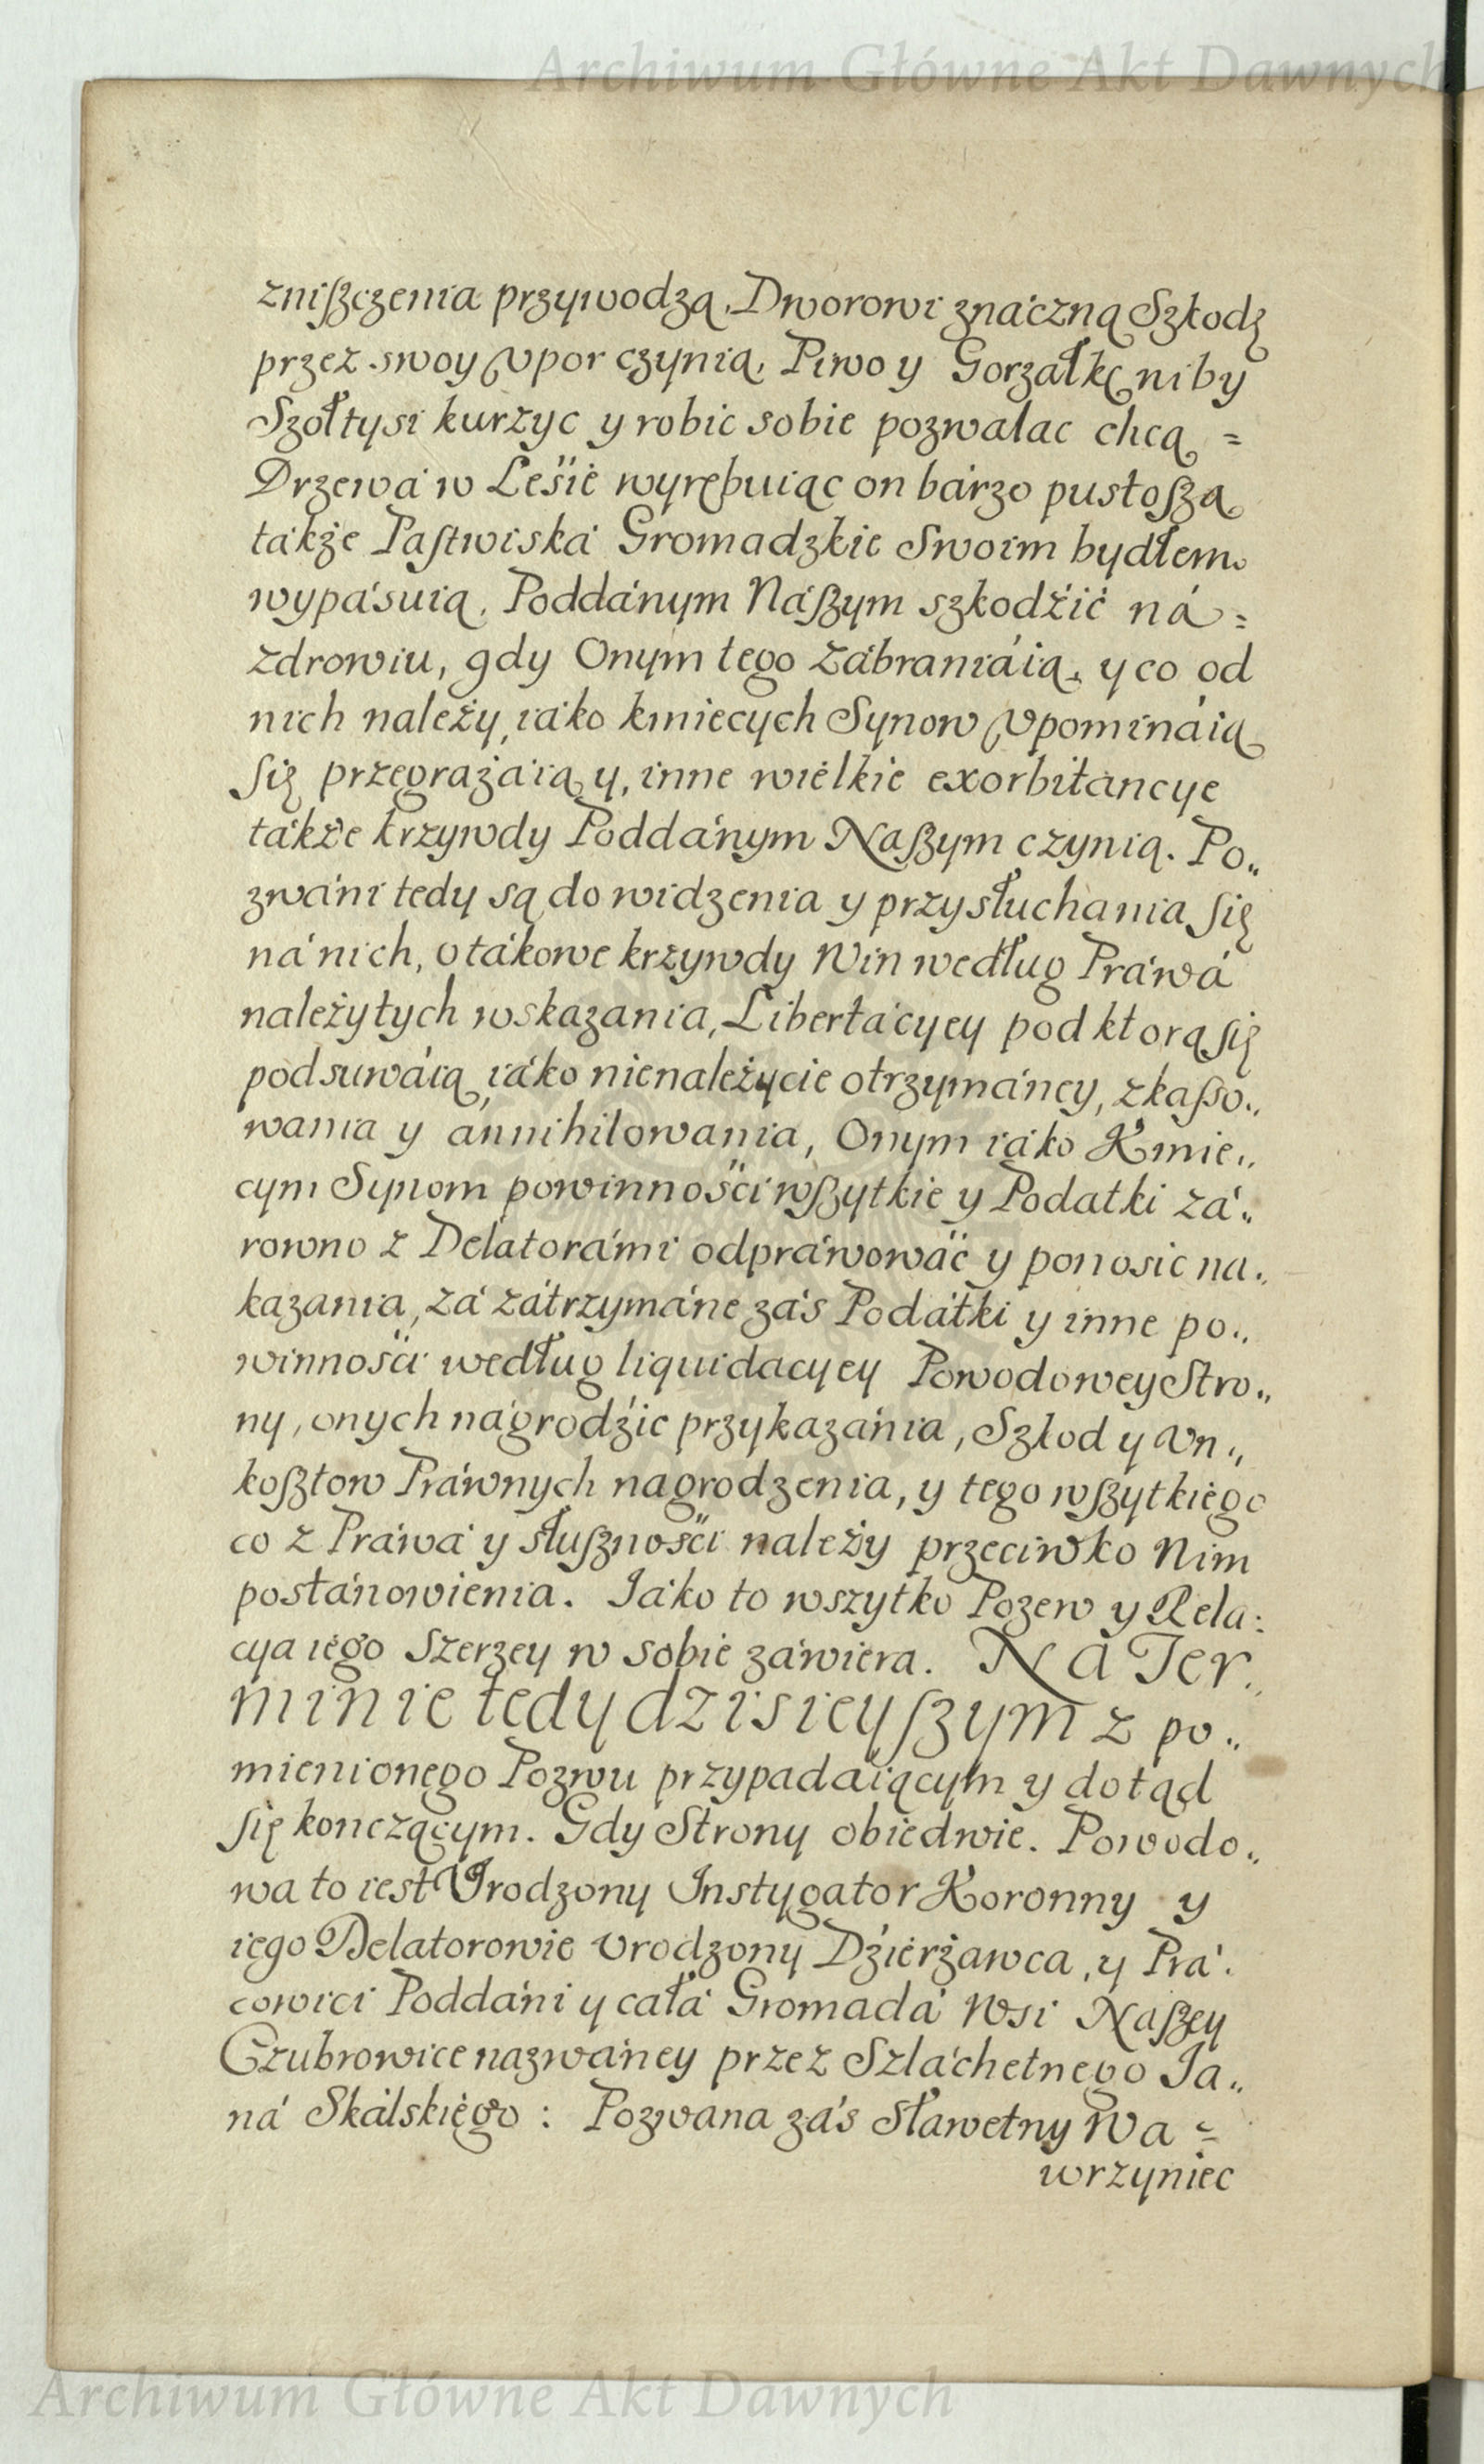 Archiwum Główne Akt Dawnych
zniſzczenia przywodzą, Dworowi znáczną Szkodę
przez swoy Vpor czynią, Piwo y Gorzałkę niby
Szołtysi kurzyc y robic sobie pozwalac chcą =
Drzewá w Leśie wyrębuiąc on bárzo pustoſzą
tákże Paſtwiská Gromadzkie Swoim bydłem
wypásuią, Poddánym Náſzym szkodźić ná =
zdrowiu, gdy Onym tego zábraniáią, y co od
nich należy, iáko kmiecych Synow Vpomináią
ſię przegrażáią y, inne wielkie exorbitancye
tákże krzywdy Poddánym Naſzym czynią. Po„
zwáni tedy są do widzenia y przysłuchania ſię
ná nich, o tákowe krzywdy Win według Práwá
należytych wskazania, Libertácyey pod ktorą ſię
podsuwáią, iáko nienależycie otrzymáney, zkaſso„
wania y ánnihilowania, Onym iáko Kmie„
cym Synom powinnośći wſzytkie y Podatki zá„
rowno z Delatorámi odpráwowáć y ponosic na„
kazania, zá zátrzymáne zás Podátki y inne po„
winnośći według liquidacyey Powodowey Stro„
ny, onych nágrodźic przykazánia, Szkod y Vn„
koſztow Práwnych nagrodzenia, y tego wſzytkiego
co z Práwá y słuſznośći należy przeciwko Nim
postánowienia. Jáko to wszytko Pozew y Rela:
cya iego Szerzey w sobie záwiera. Na Ter„
minie tedy dzisieyſzym z po„
mienionego Pozwu przypadaiącym y dotąd
ſię konczącym. Gdy Strony obiedwie. Powodo„
wa to iest Vrodzony Instygator Koronny y
iego Delatorowie Vrodzony Dźierżawca, y Prá:
cowici Poddáni y cała Gromadá Wsi Naſzey
Czubrowice nazwáney przez Szláchetnego Ja„
ná Skálskiego : Pozwana zás Sławetny Wa =
wrzyniec
Archiwum Główne Akt Dawnych